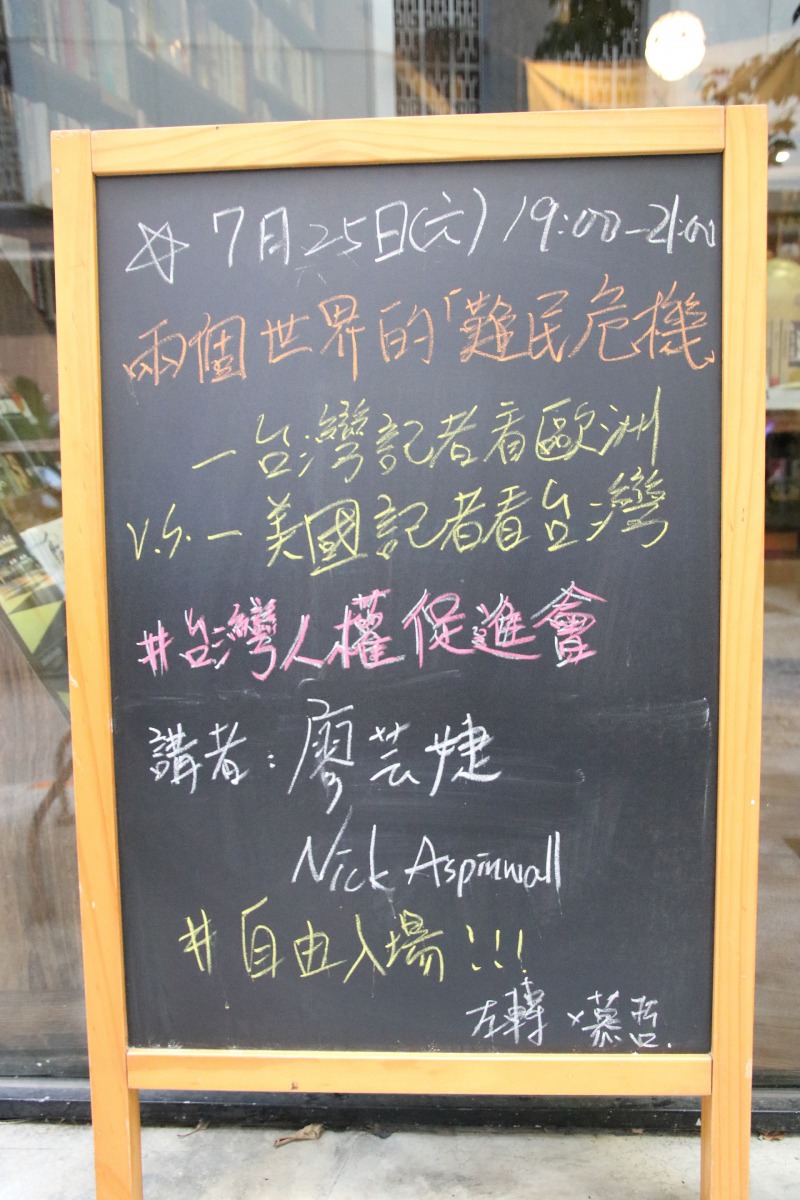 ☆ 7月25日(六) 19:00-21:00
兩個世界的「難民危機」
一台灣記者看歐洲
V.S. 一美國記者看台灣
#台灣人權促進會
講者：廖芸婕
Nick Aspinwall
#自由入場!!!
左轉×慕哲.